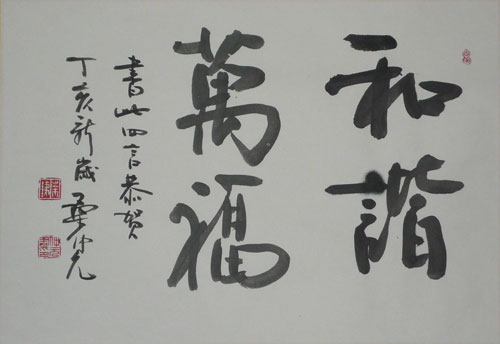 和諧
萬福
書此四言恭贺
丁亥新歲